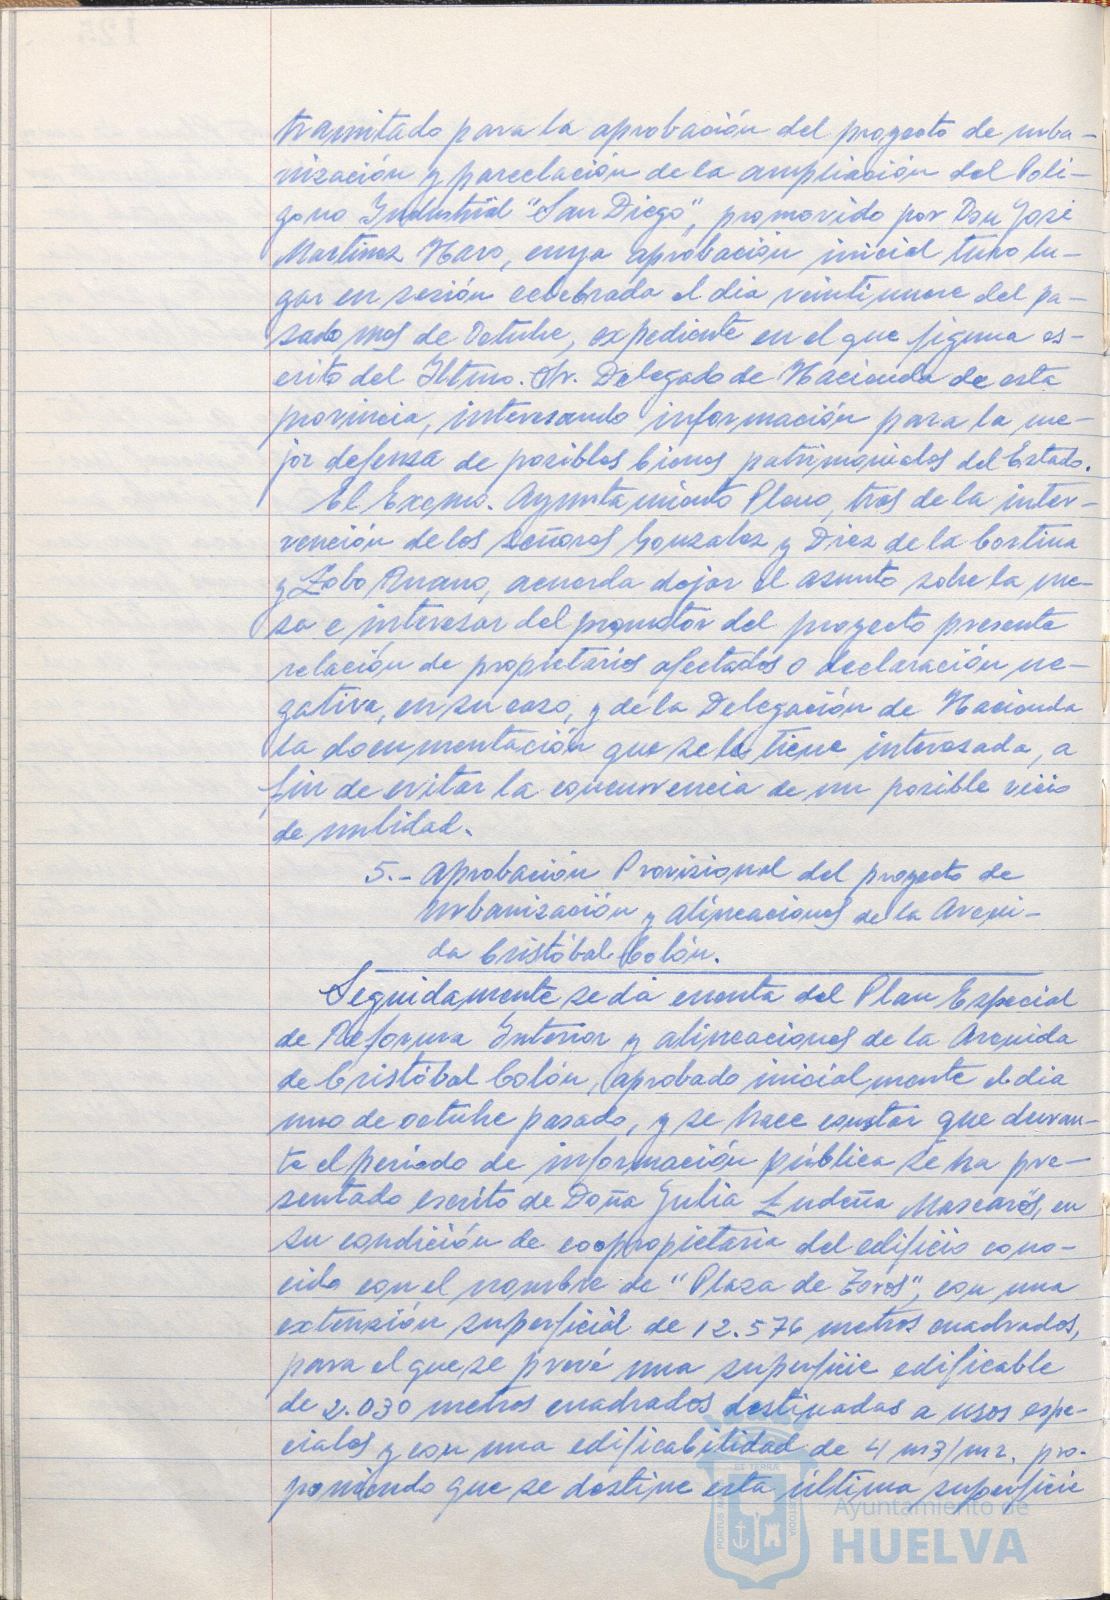 tramitado para la aprobación del proyecto de urba-
nización y parcelación de la ampliación del Polí-
gono Industrial "San Diego", promovido por Don José
Martínez Haro, cuya aprobación inicial tuvo lu-
gar en sesión celebrada el dia veintinueve del pa-
sado mes de Octubre, expediente en el que figura es-
crito del Iltmo. Sr. Delegado de Hacienda de esta
provincia, interesando información para la me-
jor defensa de posibles bienes patrimoniales del Estado.
El Excmo. Ayuntamiento Pleno, tras de la inter-
vención de los señores González y Diez de la Cortina
y Lobo Ruano, acuerda dejar el asunto sobre la me-
sa e interesar del promotor del proyecto presente
relación de propietarios afectados o declaración ne-
gativa, en su caso, y de la Delegación de Hacienda
la documentación que se le tiene interesada, a
fin de evitar la concurrencia de un posible vicio
de nulidad.
5.- Aprobación Provisional del proyecto de
Urbanización y alineaciones de la Aveni-
da Cristóbal Colón.
Seguidamente se dá cuenta del Plan Especial
de Reforma Interior y alineaciones de la Avenida
de Cristóbal Colón, aprobado inicialmente el dia
uno de octubre pasado, y se hace constar que duran-
te el periodo de información pública se ha pre-
sentado escrito de Doña Julia Ludeña Mascarós, en
su condición de coopropietaria del edificio cono-
cido con el nombre de "Plaza de Toros", con una
extensión superficial de 12.576 metros cuadrados,
para el que se prevé una superficie edificable
de 2.030 metros cuadrados destinadas a usos espe-
ciales y con una edificabilidad de 4 m3/m2. pro-
poniendo que se destine esta última superficie
Ayuntamiento de
HUELVA